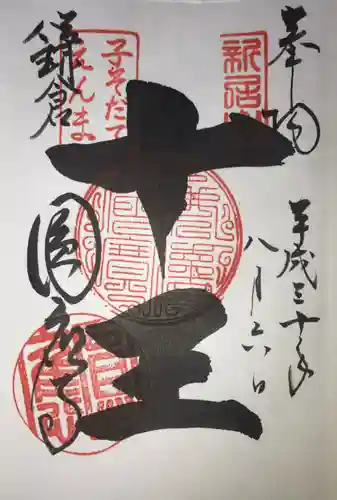 奉拝
新居山
平成三十年
八月六日
十王
子そだて
えんま
鎌倉
圓應寺